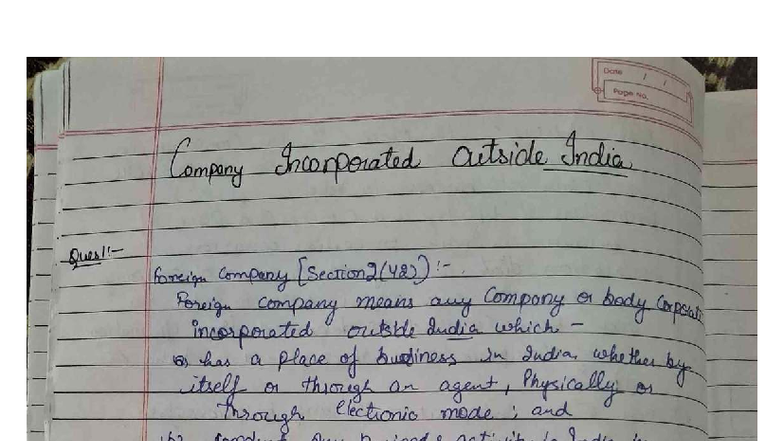 Date / /
Page No.
Company Incorporated Outside India
Ques1:-
Foreign Company [Section 2(42)] :-
Foreign company means any Company or body Corporate
incorporated outside India which -
a) has a place of business in India whether by
itself or through an agent, Physically or
through electronic mode ; and
b) conduct any business activity in India in